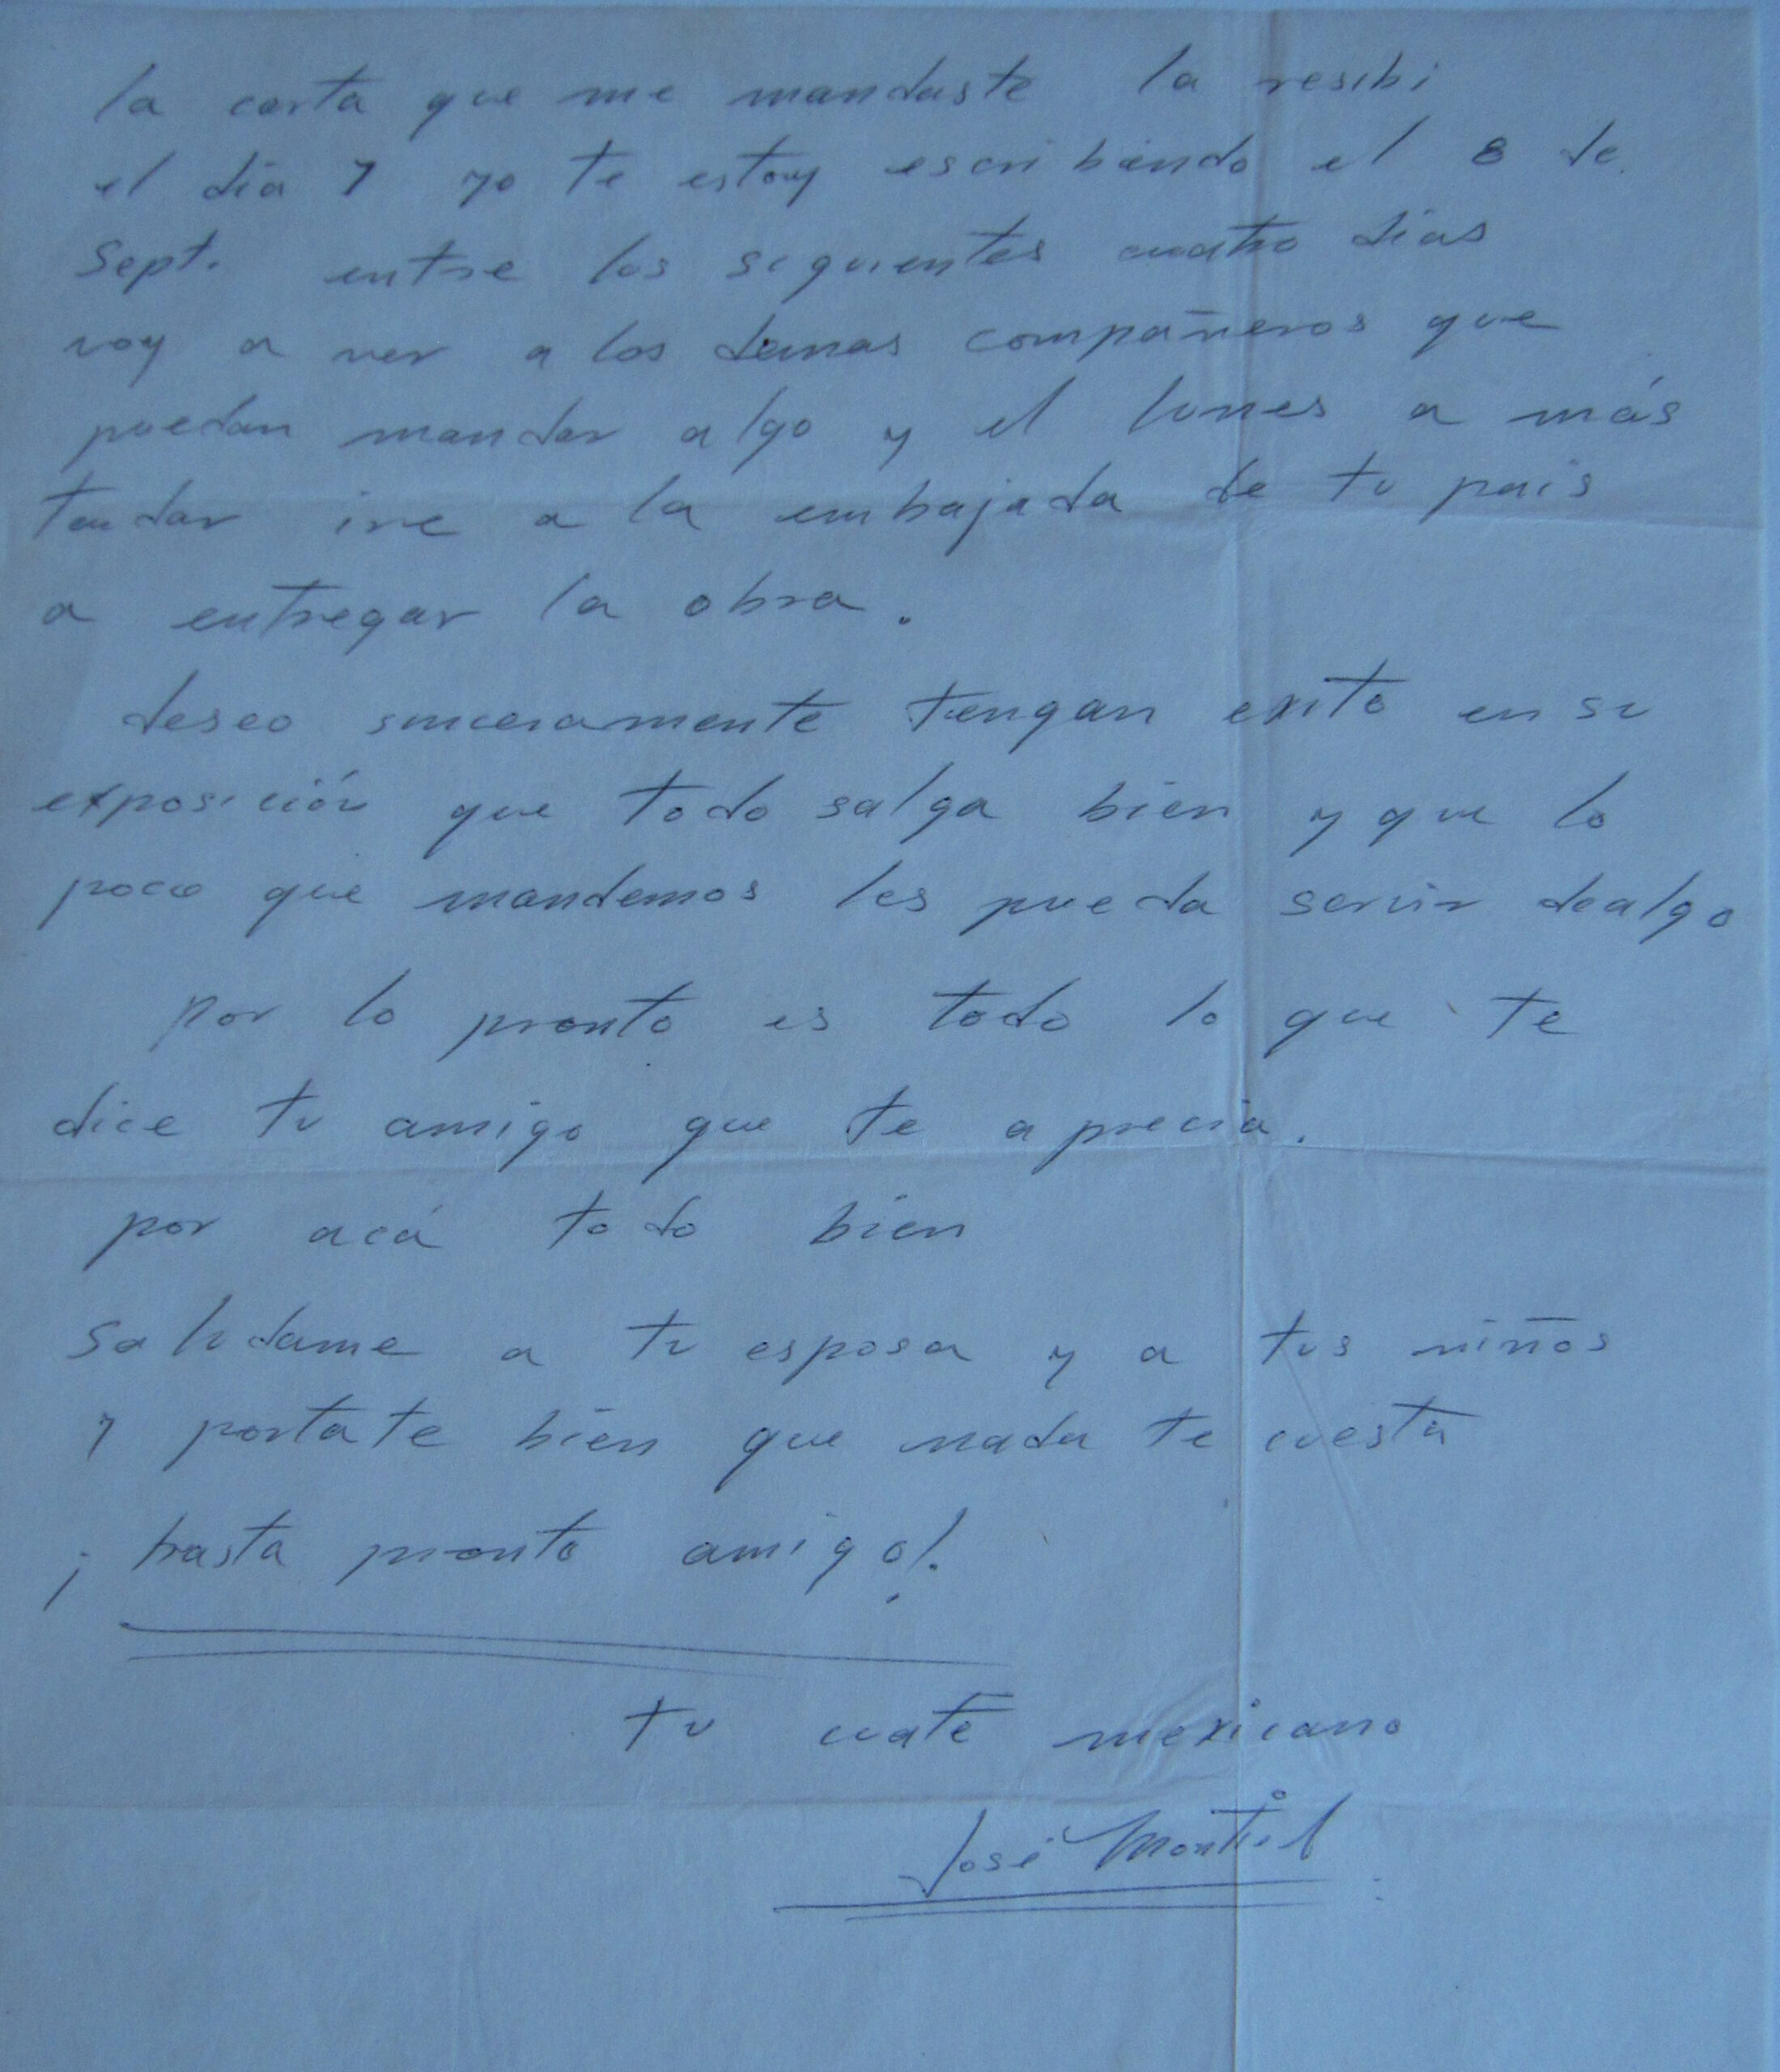 la carta que me mandaste la resibi
el dia 7 yo te estoy escribiendo el 8 de
Sept. entre los siguientes cuatro dias
voy a ver a los demas compañeros que
puedan mandar algo y el lunes a más
tardar ire a la embajada de tu pais
a entregar la obra.
deseo sinceramente tengan exito en su
exposición que todo salga bien y que lo
poco que mandemos les pueda servir de algo
por lo pronto es todo lo que te
dice tu amigo que te aprecia.
por acá todo bien
saludame a tu esposa y a tus niños
y portate bien que nada te cuesta
¡hasta pronto amigo!.
tu cuate mexicano
José Montiel